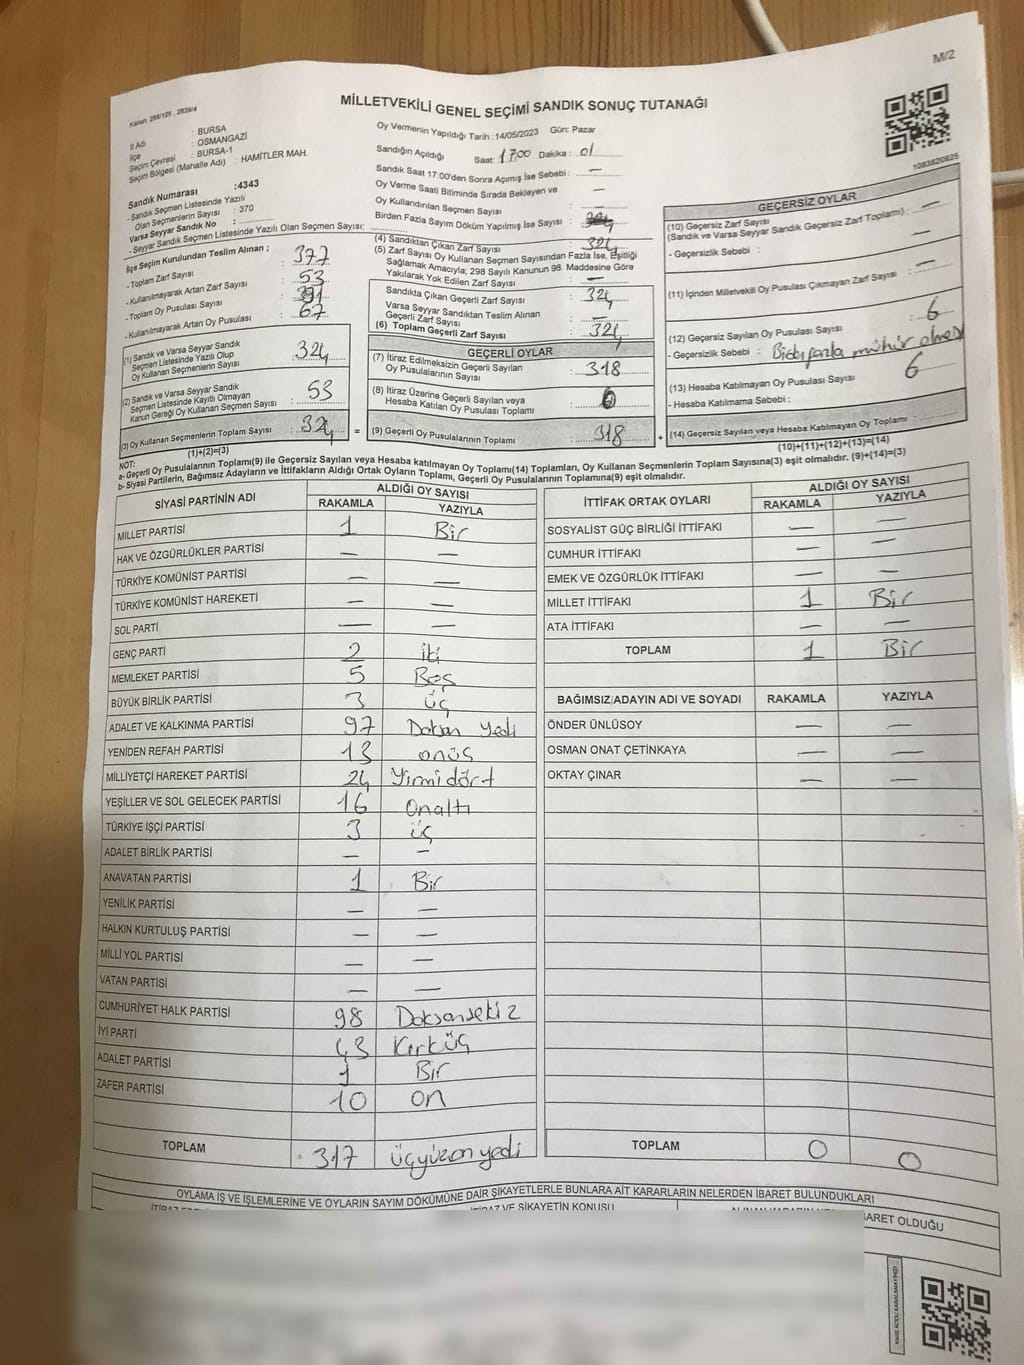 M/2
Kanun: 298/105 , 2839/4
MİLLETVEKİLİ GENEL SEÇİMİ SANDIK SONUÇ TUTANAĞI
1083820825
İl Adı : BURSA
İlçe : OSMANGAZİ
Seçim Çevresi : BURSA-1
Seçim Bölgesi (Mahalle Adı) : HAMİTLER MAH.
Sandık Numarası :4343
- Sandık Seçmen Listesinde Yazılı
Olan Seçmenlerin Sayısı : 370
Varsa Seyyar Sandık No :
- Seyyar Sandık Seçmen Listesinde Yazılı Olan Seçmen Sayısı:
Oy Vermenin Yapıldığı Tarih :14/05/2023 Gün: Pazar
Sandığın Açıldığı Saat: 17:00 Dakika : 01
Sandık Saat 17:00'den Sonra Açımış İse Sebebi : —
Oy Verme Saati Bitiminde Sırada Bekleyen ve
Oy Kullandırılan Seçmen Sayısı : —
Birden Fazla Sayım Döküm Yapılmış İse Sayısı :
İlçe Seçim Kurulundan Teslim Alınan ;
- Toplam Zarf Sayısı : 377
- Kullanılmayarak Artan Zarf Sayısı : 53
- Toplam Oy Pusulası Sayısı :
- Kullanılmayarak Artan Oy Pusulası : 67
(1) Sandık ve Varsa Seyyar Sandık
Seçmen Listesinde Yazılı Olup
Oy Kullanan Seçmenlerin Sayısı : 324
(2) Sandık ve Varsa Seyyar Sandık
Seçmen Listesinde Kayıtlı Olmayan
Kanun Gereği Oy Kullanan Seçmen Sayısı : 53
(3) Oy Kullanan Seçmenlerin Toplam Sayısı : 324
(1)+(2)=(3)
(4) Sandıktan Çıkan Zarf Sayısı : 324
(5) Zarf Sayısı Oy Kullanan Seçmen Sayısından Fazla İse, Eşitliği
Sağlamak Amacıyla; 298 Sayılı Kanunun 98. Maddesine Göre
Yakılarak Yok Edilen Zarf Sayısı : —
Sandıkta Çıkan Geçerli Zarf Sayısı : 324
Varsa Seyyar Sandıktan Teslim Alınan
Geçerli Zarf Sayısı : —
(6) Toplam Geçerli Zarf Sayısı : 324
GEÇERLİ OYLAR
(7) İtiraz Edilmeksizin Geçerli Sayılan
Oy Pusulalarının Sayısı : 318
(8) İtiraz Üzerine Geçerli Sayılan veya
Hesaba Katılan Oy Pusulası Toplamı :
= (9) Geçerli Oy Pusulalarının Toplamı : 318
GEÇERSİZ OYLAR
(10) Geçersiz Zarf Sayısı
(Sandık ve Varsa Seyyar Sandık Geçersiz Zarf Toplamı) : —
- Geçersizlik Sebebi : —
(11) İçinden Milletvekili Oy Pusulası Çıkmayan Zarf Sayısı : —
(12) Geçersiz Sayılan Oy Pusulası Sayısı : 6
- Geçersizlik Sebebi : Birden fazla mühür olması
(13) Hesaba Katılmayan Oy Pusulası Sayısı : 6
- Hesaba Katılmama Sebebi :
+ (14) Geçersiz Sayılan veya Hesaba Katılmayan Oy Toplamı :
(10)+(11)+(12)+(13)=(14)
NOT:
a- Geçerli Oy Pusulalarının Toplamı(9) ile Geçersiz Sayılan veya Hesaba katılmayan Oy Toplamı(14) Toplamları, Oy Kullanan Seçmenlerin Toplam Sayısına(3) eşit olmalıdır. (9)+(14)=(3)
b- Siyasi Partilerin, Bağımsız Adayların ve İttifakların Aldığı Ortak Oyların Toplamı, Geçerli Oy Pusulalarının Toplamına(9) eşit olmalıdır.
SİYASİ PARTİNİN ADI ALDIĞI OY SAYISI
RAKAMLA YAZIYLA
MİLLET PARTİSİ 1 Bir
HAK VE ÖZGÜRLÜKLER PARTİSİ — —
TÜRKİYE KOMÜNİST PARTİSİ — —
TÜRKİYE KOMÜNİST HAREKETİ — —
SOL PARTİ — —
GENÇ PARTİ 2 iki
MEMLEKET PARTİSİ 5 Beş
BÜYÜK BİRLİK PARTİSİ 3 üç
ADALET VE KALKINMA PARTİSİ 97 Doksan yedi
YENİDEN REFAH PARTİSİ 13 onüç
MİLLİYETÇİ HAREKET PARTİSİ 24 Yirmi dört
YEŞİLLER VE SOL GELECEK PARTİSİ 16 Onaltı
TÜRKİYE İŞÇİ PARTİSİ 3 üç
ADALET BİRLİK PARTİSİ — —
ANAVATAN PARTİSİ 1 Bir
YENİLİK PARTİSİ — —
HALKIN KURTULUŞ PARTİSİ — —
MİLLİ YOL PARTİSİ — —
VATAN PARTİSİ — —
CUMHURİYET HALK PARTİSİ 98 Doksansekiz
İYİ PARTİ 43 Kırküç
ADALET PARTİSİ 1 Bir
ZAFER PARTİSİ 10 on
TOPLAM 317 üçyüzon yedi
İTTİFAK ORTAK OYLARI ALDIĞI OY SAYISI
RAKAMLA YAZIYLA
SOSYALİST GÜÇ BİRLİĞİ İTTİFAKI — —
CUMHUR İTTİFAKI — —
EMEK VE ÖZGÜRLÜK İTTİFAKI — —
MİLLET İTTİFAKI 1 Bir
ATA İTTİFAKI — —
TOPLAM 1 Bir
BAĞIMSIZ ADAYIN ADI VE SOYADI RAKAMLA YAZIYLA
ÖNDER ÜNLÜSOY — —
OSMAN ONAT ÇETİNKAYA — —
OKTAY ÇINAR — —
TOPLAM 0 0
OYLAMA İŞ VE İŞLEMLERİNE VE OYLARIN SAYIM DÖKÜMÜNE DAİR ŞİKAYETLERLE BUNLARA AİT KARARLARIN NELERDEN İBARET BULUNDUKLARI
İTİRAZ VE ŞİKAYETİN KONUSU
İBARET OLDUĞU